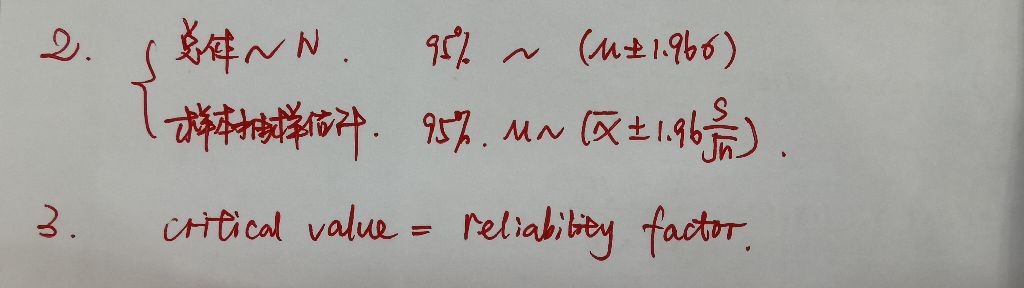 2. { 总体 ~ N. 95% ~ (μ±1.96σ)
样本抽样估计. 95%. μ~ (x̄ ± 1.96 s/√n).
3. critical value = reliability factor.